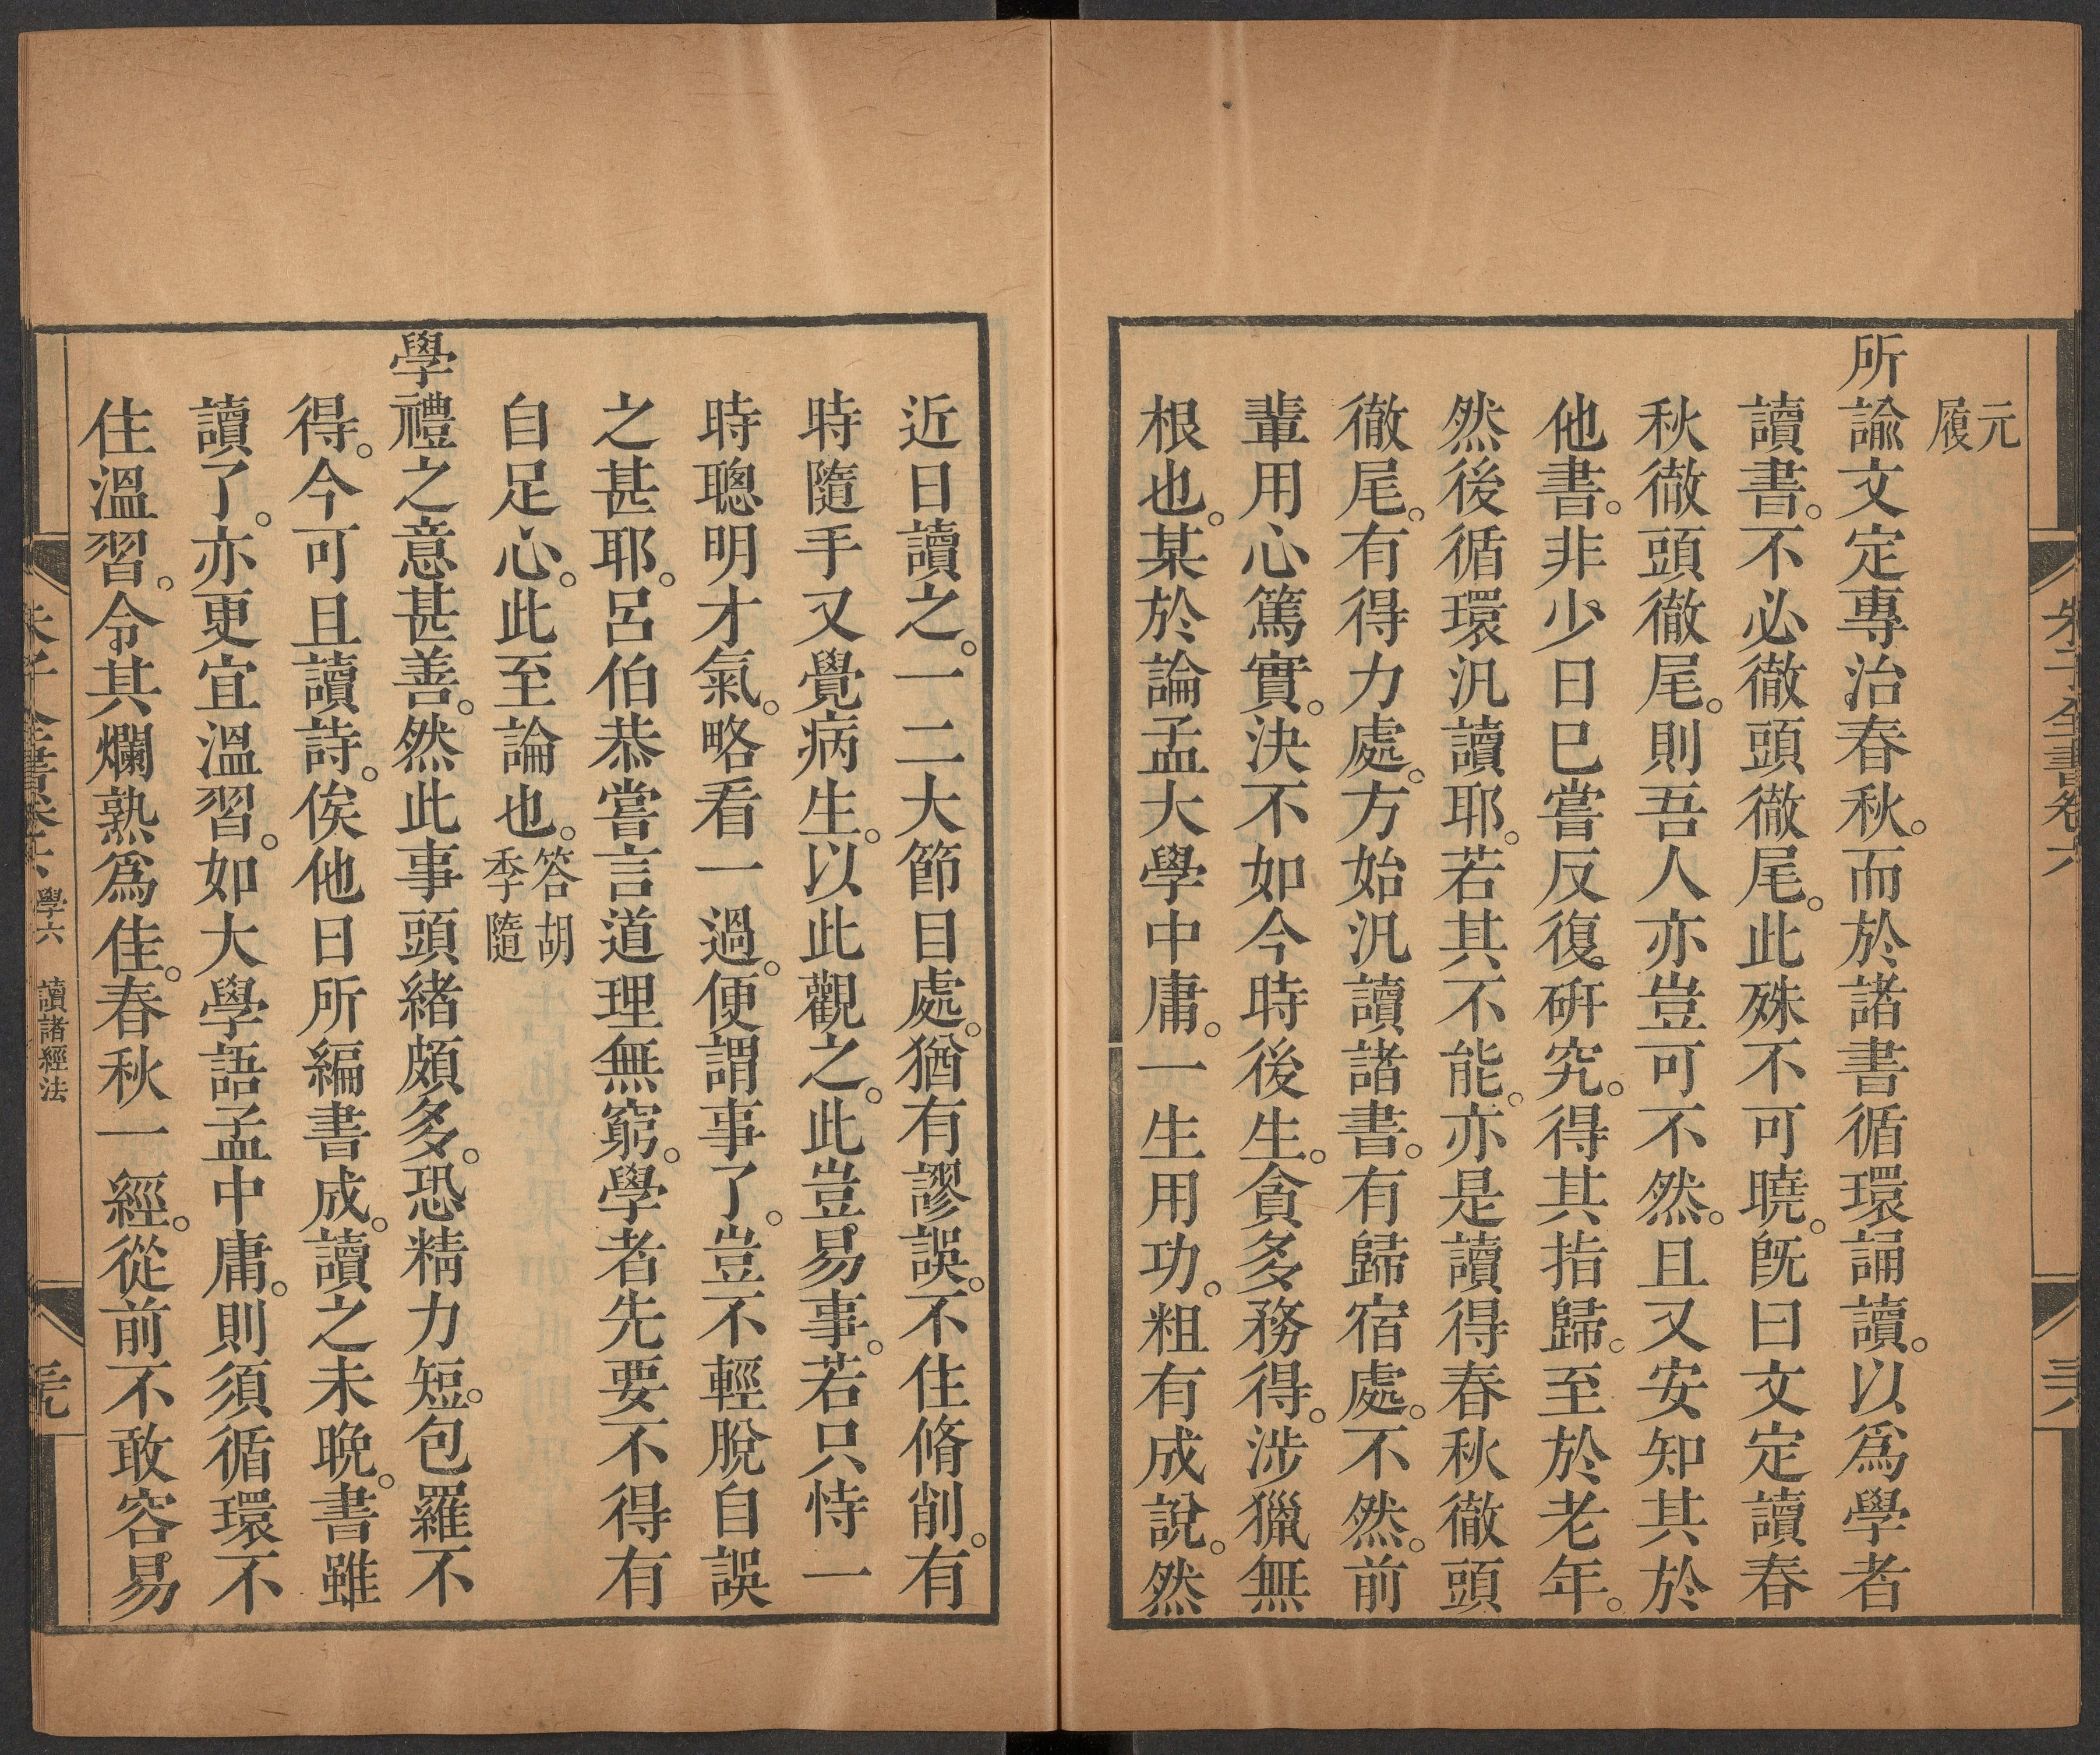 朱子全書卷六
元
履
所諭文定專治春秋。而於諸書循環誦讀。以爲學者
讀書。不必徹頭徹尾。此殊不可曉。旣曰文定讀春
秋徹頭徹尾。則吾人亦豈可不然。且又安知其於
他書。非少日已嘗反復研究。得其指歸。至於老年。
然後循環汎讀耶。若其不能。亦是讀得春秋徹頭
徹尾。有得力處。方始汎讀諸書。有歸宿處。不然。前
輩用心篤實。決不如今時後生。貪多務得。涉獵無
根也。某於論孟大學中庸。一生用功。粗有成說。然
近日讀之。一二大節目處。猶有謬誤。不住脩削。有
時隨手又覺病生。以此觀之。此豈易事。若只恃一
時聰明才氣。略看一過。便謂事了。豈不輕脫自誤
之甚耶。呂伯恭嘗言道理無窮。學者先要不得有
自足心。此至論也。答胡
季隨
學禮之意甚善。然此事頭緒頗多。恐精力短。包羅不
得。今可且讀詩。俟他日所編書成。讀之未晚。書雖
讀了。亦更宜溫習。如大學語孟中庸。則須循環不
住溫習。令其爛熟爲佳。春秋一經。從前不敢容易
朱子全書卷六 學六 讀諸經法